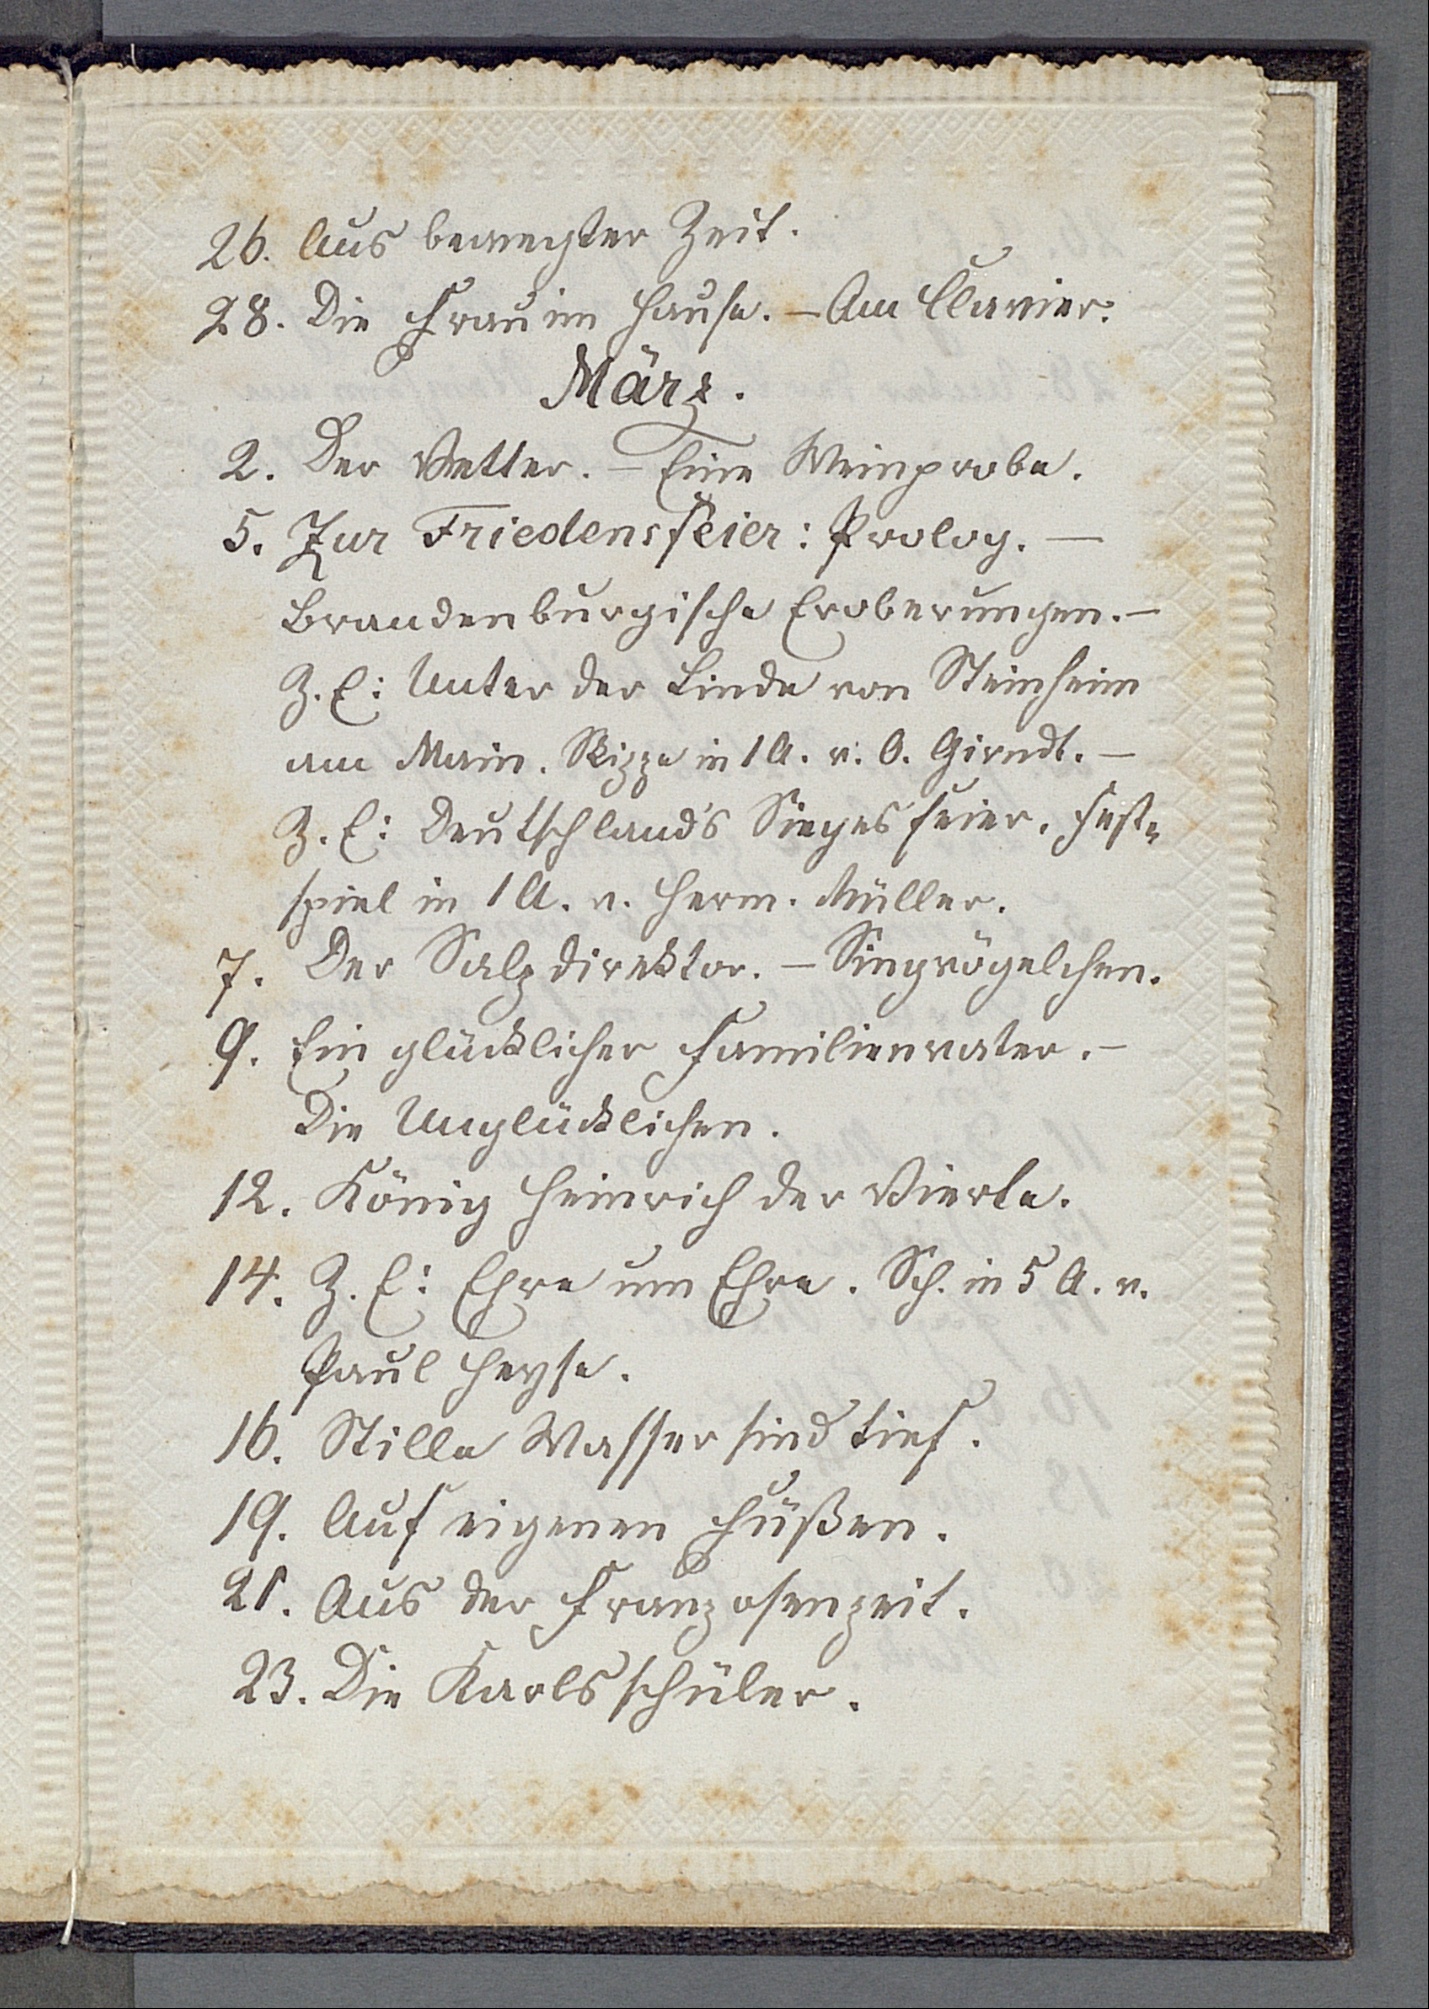 26. Aus bewegter Zeit.
28. Die Frau im Hause. – Am Clavier.
März.
2. Der Vetter. – Eine Weinprobe.
5. Zur Friedensfeier: Prolog. –
Brandenburgische Eroberungen. –
Z. E: Unter der Linde von Steinheim
am Main. Skizze in 1 A. v. O. Girndt. –
Z. E: Deutschlands Siegesfeier. Fest-
spiel in 1 A. v. Herm. Müller.
7. Der Salzdirektor. – Singvögelchen.
9. Ein glücklicher Familienvater. –
Die Unglücklichen.
12. König Heinrich der Vierte.
14. Z. E: Ehre um Ehre. Sch. in 5 A. v.
Paul Heyse.
16. Stille Wasser sind tief.
19. Auf eigenen Füßen.
21. Aus der Franzosenzeit.
23. Die Karlsschüler.